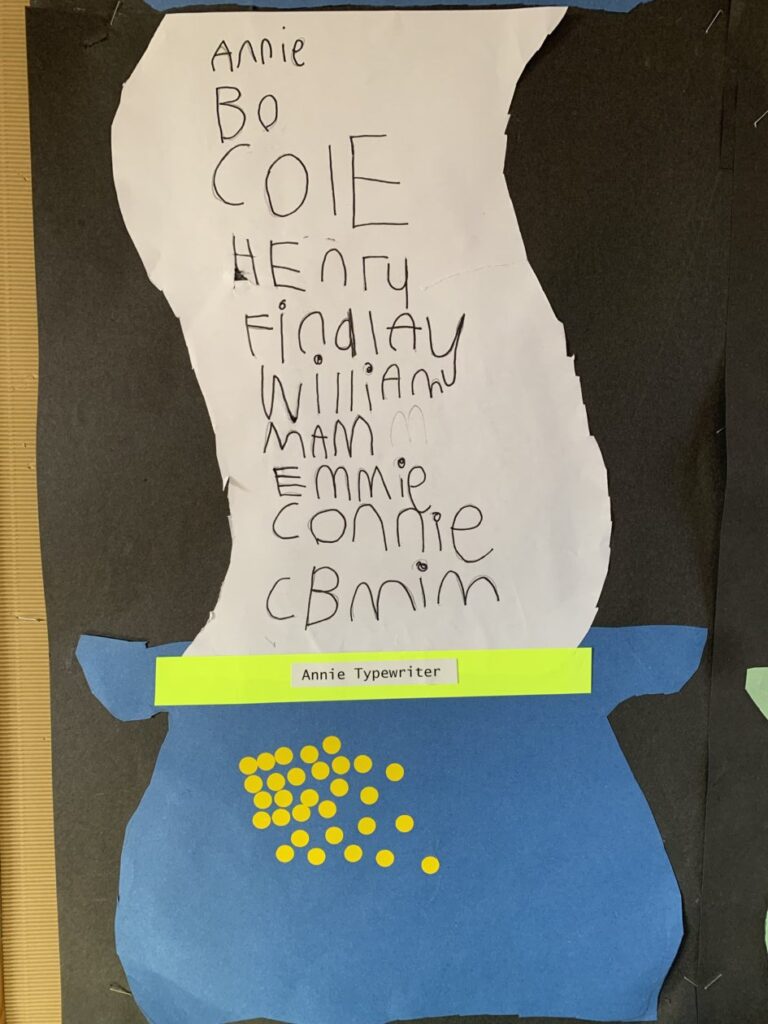 Annie
BO
COlE
HEnry
Findlay
William
MAM m
Emmie
Connie
CBmim
Annie Typewriter